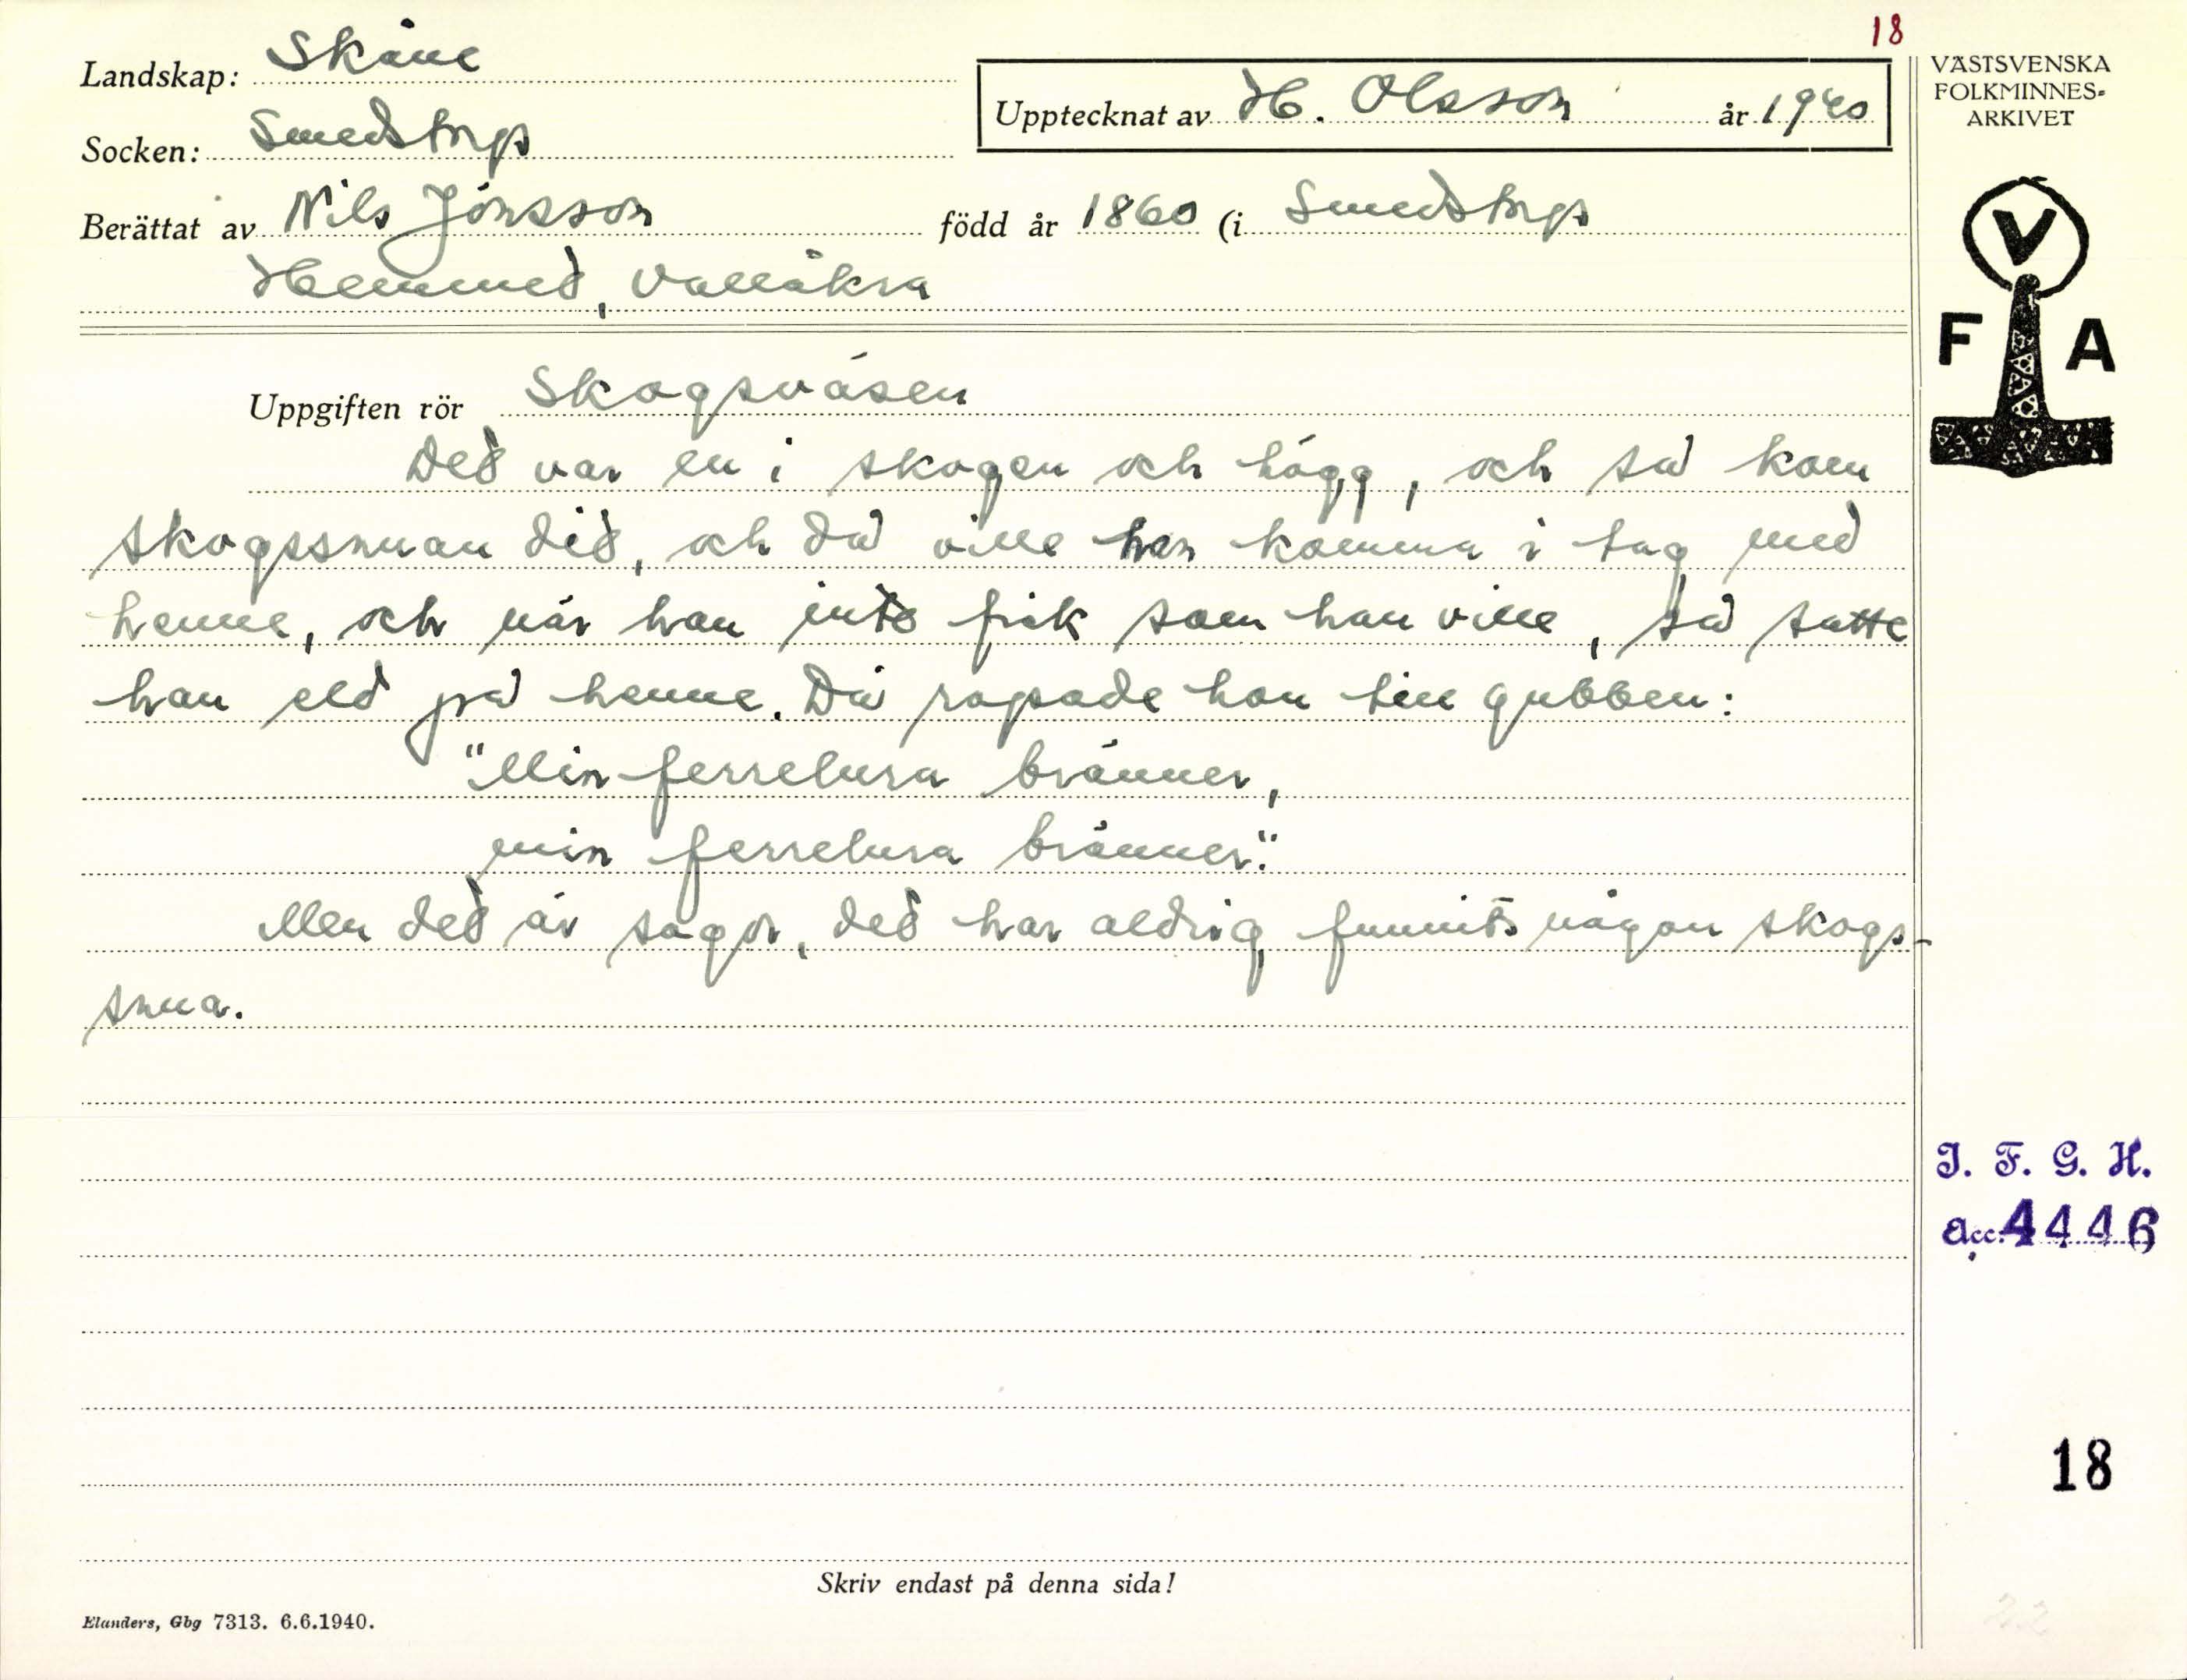 18
Landskap: Skåne
Upptecknat av H. Olsson år 1940
Socken: Smedstorp
Berättat av Nils Jönsson född år 1860 (i Smedstorp
Hemmet, Vallåkra
VÄSTSVENSKA
FOLKMINNES-
ARKIVET
V
F A
Uppgiften rör Skogsväsen
Det var en i skogen och högg, och så kom
skogssnuan dit, och då ville han komma i tag med
henne, och när han inte fick som han ville, så satte
han eld på henne. Då ropade hon till gubben:
"Min ferrelura bränner,
min ferrelura bränner."
Men det är sagor, det har aldrig funnits någon skogs-
snua.
I. F. G. H.
Acc. 4446
18
Skriv endast på denna sida!
Elanders, Gbg 7313. 6.6.1940.
22